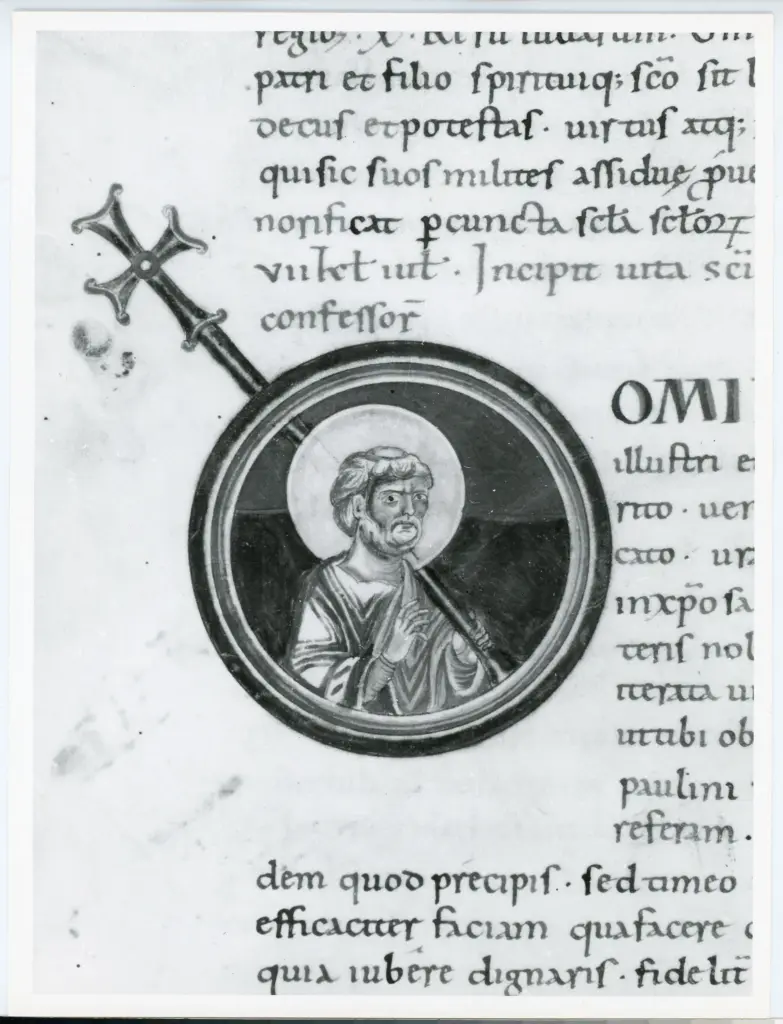 patri et filio spirituiq; sc̄o sit
decus et potestas · uirtus atq;
qui sic suos milites assidue p̄ue
norificat ꝑ cuncta scl̄a scl̄oꝝ
Incipit uita sc̄i
confessor̄
OMI
illustri e
rito · uer
cato · ur
in xp̄o sa
teris nol
tterata u
ut tibi ob
paulini
referam ·
dem quod precipis · sed timeo
efficaciter faciam qua facere
quia iubere dignaris · fidelit̄